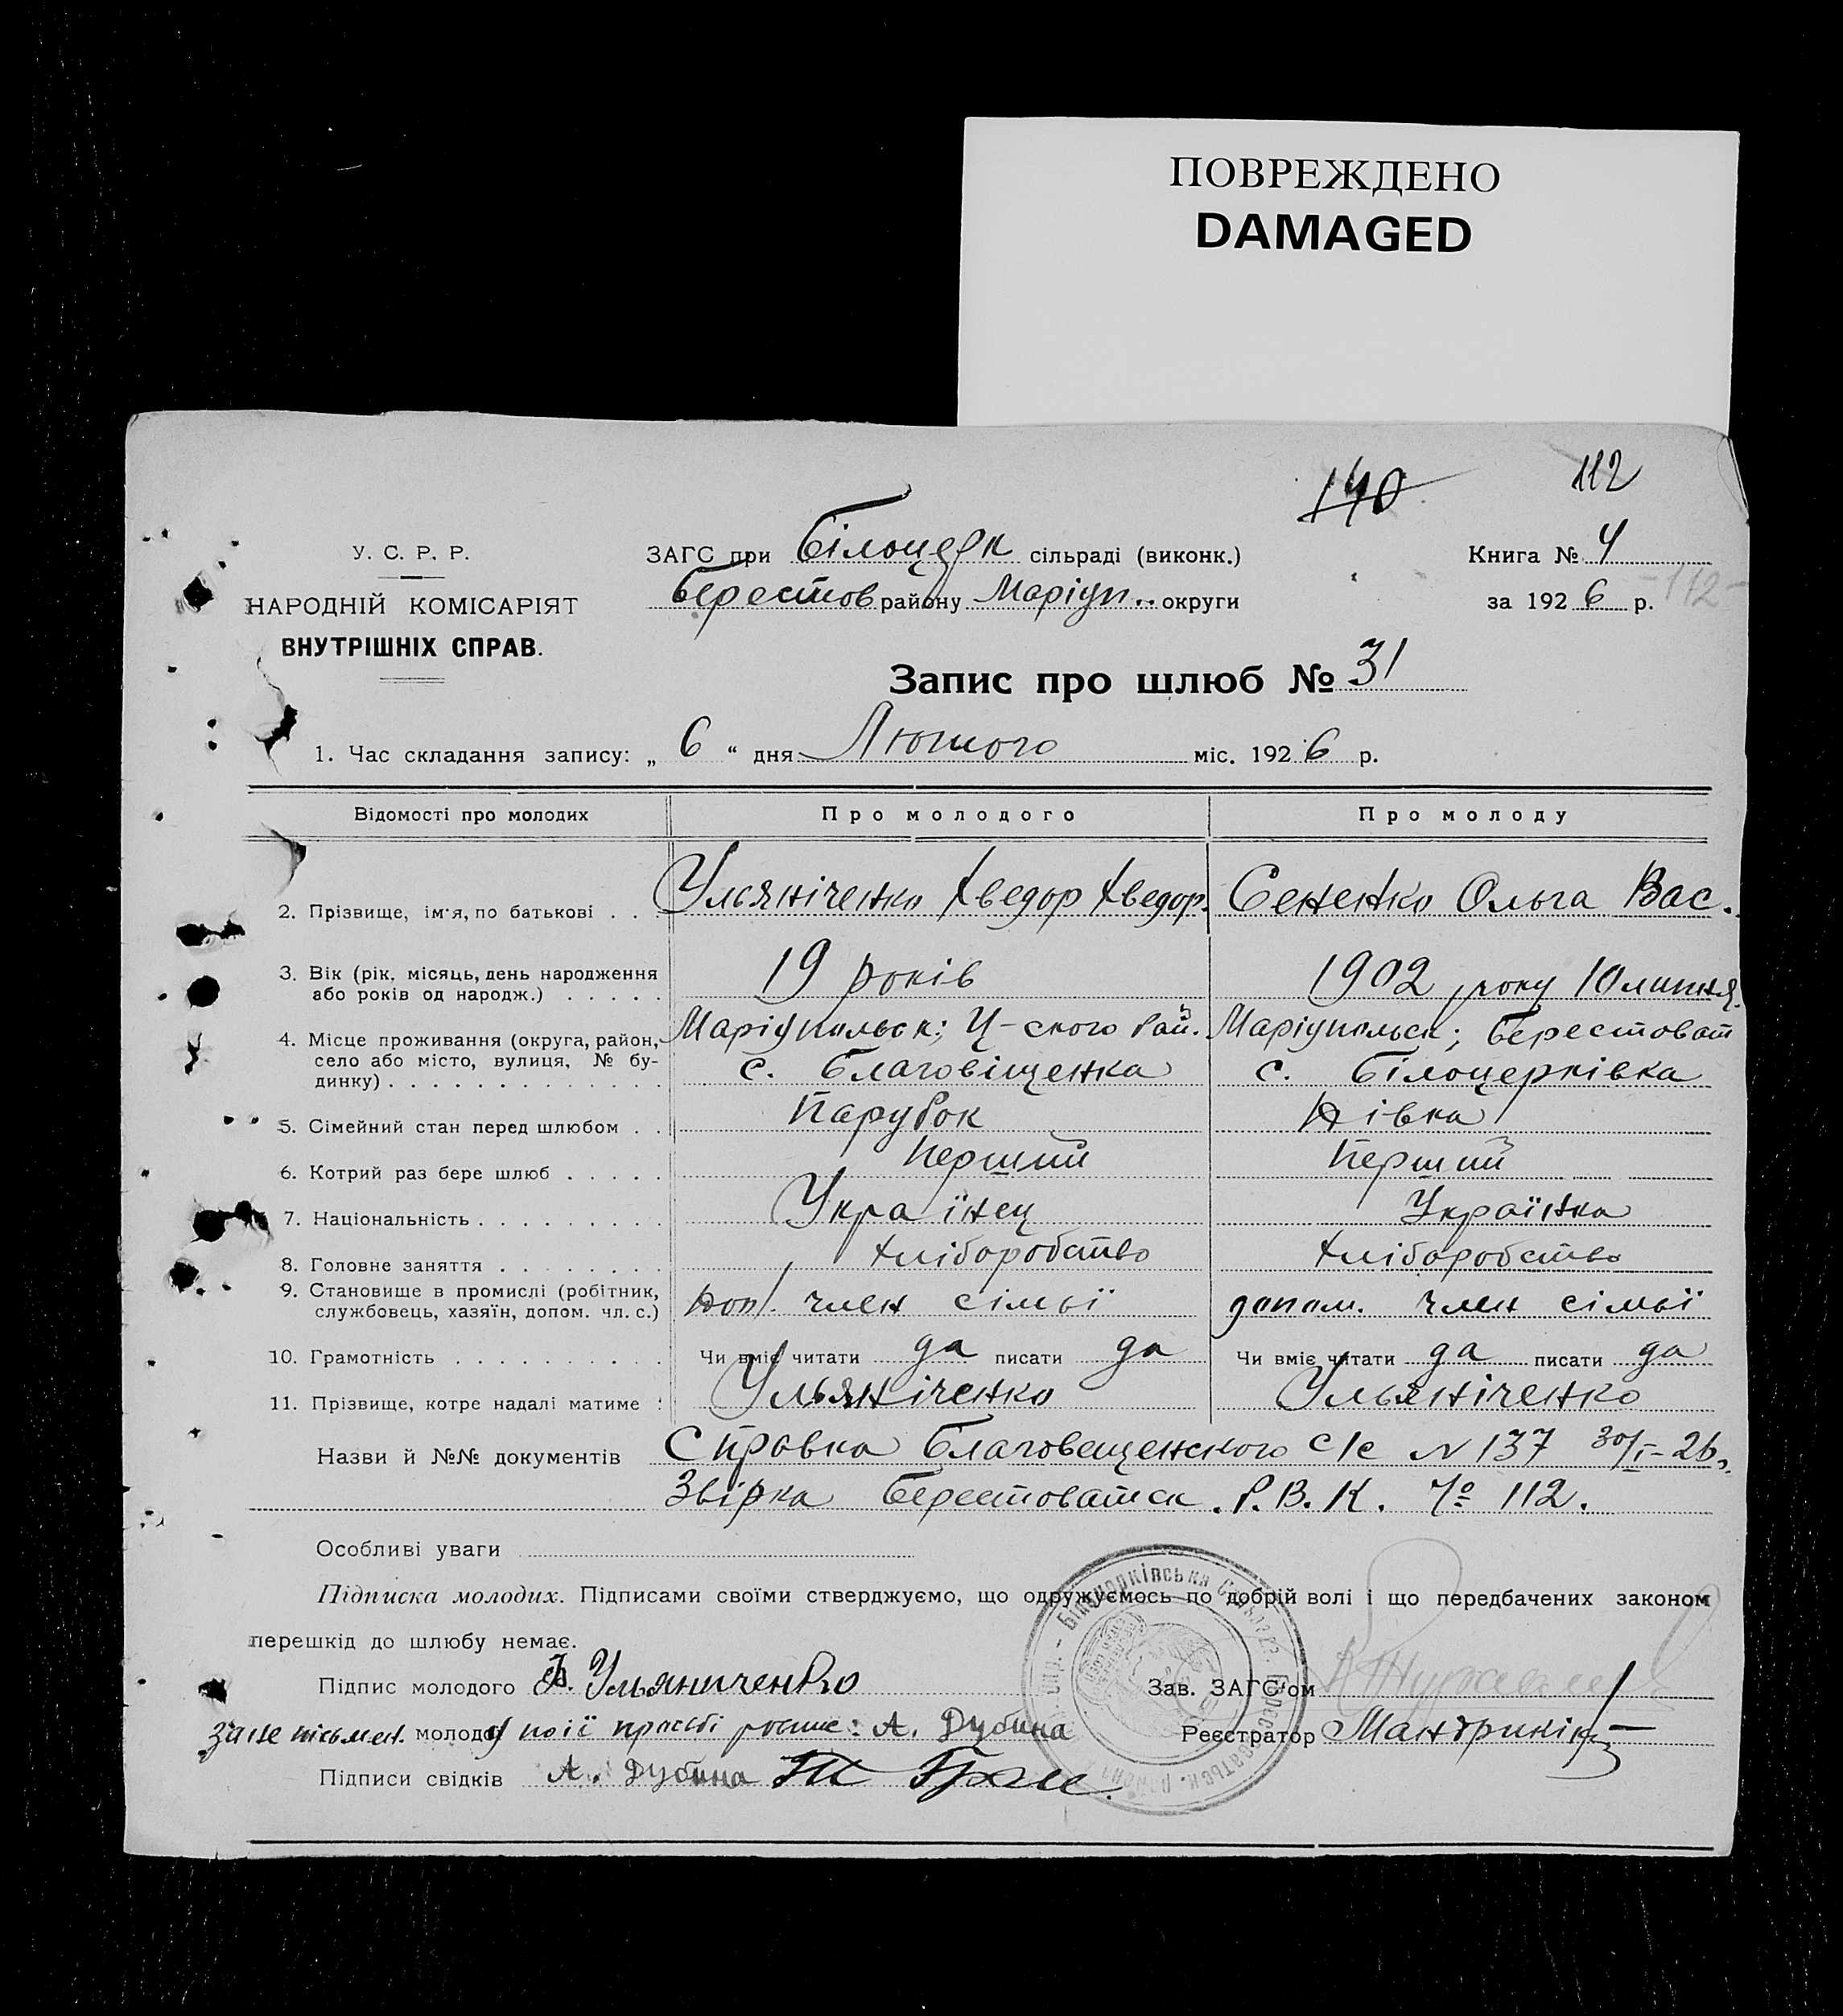 ПОВРЕЖДЕНО
DAMAGED
140 112
У. С. Р. Р.
НАРОДНІЙ КОМІСАРІЯТ
ВНУТРІШНІХ СПРАВ.
ЗАГС при Білоцерк сільраді (виконк.)
Берестов району Маріуп.. округи
Книга № 4
за 1926 р. -112-
Запис про шлюб № 31
1. Час складання запису: „ 6 “ дня Лютого міс. 1926 р.
Відомості про молодих Про молодого Про молоду
2. Прізвище, ім'я, по батькові . . Ульяніченко Хведор Хведор. Сененко Ольга Вас.
3. Вік (рік, місяць, день народження або років од народж.) . . . . . 19 років 1902 року 10 липня.
4. Місце проживання (округа, район, село або місто, вулиця, № будинку) . . . . . Маріупольськ; Ц-ского Рай. с. Благовіщенка Маріупольськ; Берестоват с. Білоцерківка
5. Сімейний стан перед шлюбом . . Парубок Дівка
6. Котрий раз бере шлюб . . . . . Перший Перший
7. Національність . . . . . Українец Українка
8. Головне заняття . . . . . Хліборобство Хліборобство
9. Становище в промислі (робітник, службовець, хазяїн, допом. чл. с.) Доп. член сімьї допом. член сімьї
10. Грамотність . . . . . Чи вміє читати да писати да Чи вміє читати да писати да
11. Прізвище, котре надалі матиме : Ульяніченко Ульяніченко
Назви й №№ документів Справка Благовещенского с/с N 137 30/I-26.
Звірка Берестоватск. Р.В.К. № 112.
Особливі уваги
Підписка молодих. Підписами своїми стверджуємо, що одружуємось по добрій волі і що передбачених законом
перешкід до шлюбу немає.
Підпис молодого Ф. Ульяниченко Зав. ЗАГС'ом
За не письмен. молоду по її прозьбі роспис: А. Дубина Реєстратор
Підписи свідків А. Дубина
Білоцерківська